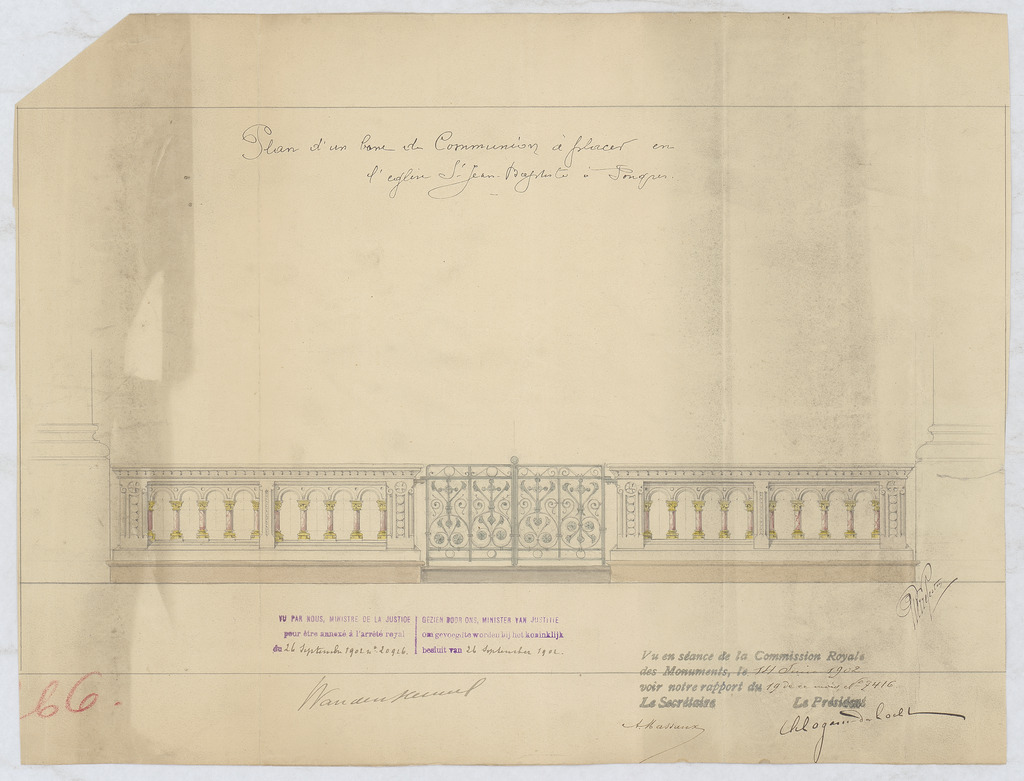 Plan d'un banc de Communion à placer en
l'église St Jean-Baptiste à Tongres.
VU PAR NOUS, MINISTRE DE LA JUSTICE
pour être annexé à l'arrêté royal
du 26 Septembre 1902 n° 20926.
GEZIEN DOOR ONS, MINISTER VAN JUSTITIE
om gevoegd te worden bij het koninklijk
besluit van 26 September 1902.
Vu en séance de la Commission Royale
des Monuments, le 14 Juin 1902
voir notre rapport du 19 de ce mois N° 7416
Le Secrétaire Le Président
A. Massaux
66.